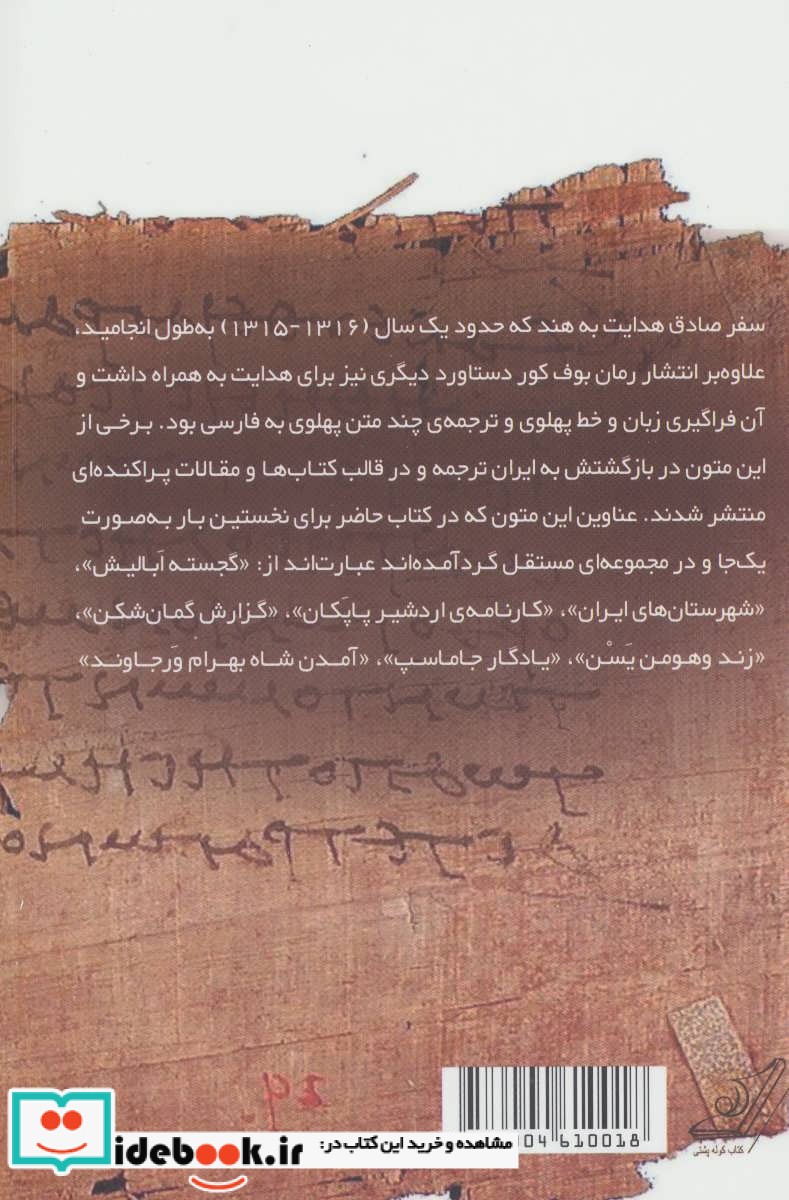 سفر صادق هدایت به هند که حدود یک سال (۱۳۱۶-۱۳۱۵) به‌طول انجامید،
علاوه‌بر انتشار رمان بوف کور دستاورد دیگری نیز برای هدایت به همراه داشت و
آن فراگیری زبان و خط پهلوی و ترجمه‌ی چند متن پهلوی به فارسی بود. برخی از
این متون در بازگشتش به ایران ترجمه و در قالب کتاب‌ها و مقالات پراکنده‌ای
منتشر شدند. عناوین این متون که در کتاب حاضر برای نخستین بار به‌صورت
یک‌جا و در مجموعه‌ای مستقل گردآمده‌اند عبارت‌اند از: «گجسته اَبالیش»،
«شهرستان‌های ایران»، «کارنامه‌ی اردشیر پاپَکان»، «گزارش گمان‌شکن»،
«زند وهومن یَسْن»، «یادگار جاماسپ»، «آمدن شاه بهرام وَرجاوند»
04 610018
کتاب کوله پشتی
مشاهده و خرید این کتاب در:
idebook.ir